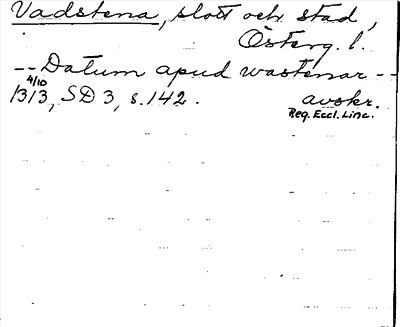 Vadstena, slott och stad,
Österg. l.
-- Datum apud wastenar --
4/10
1313, SD 3, s. 142. avskr.
Reg. Eccl. Linc.